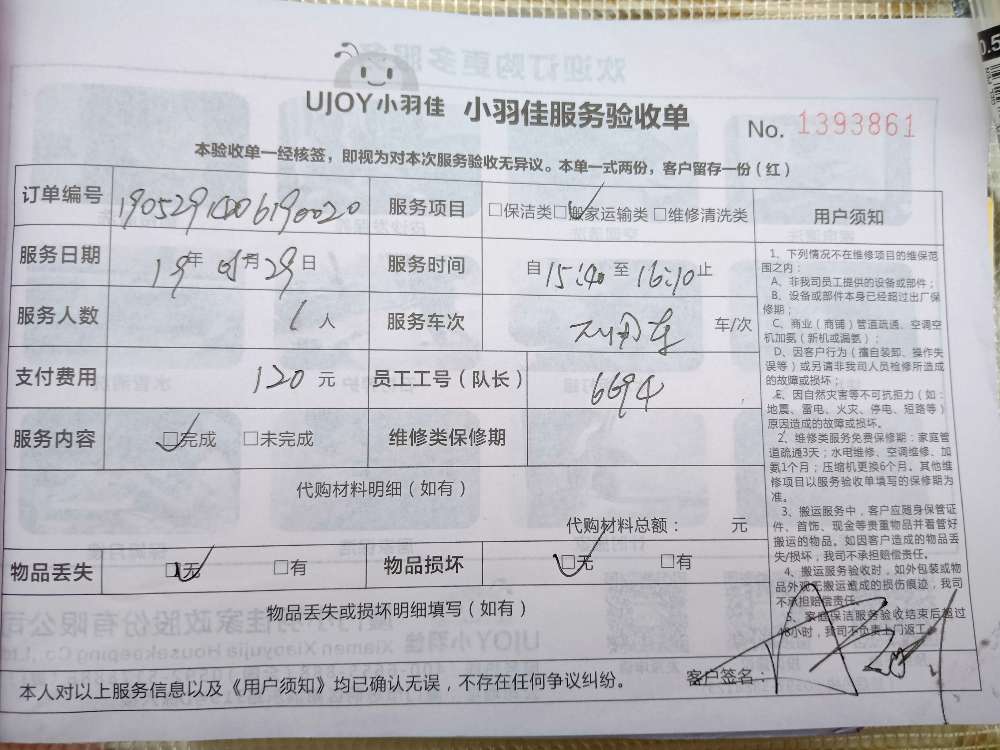 UJOY小羽佳 小羽佳服务验收单 No. 1393861
本验收单一经核签，即视为对本次服务验收无异议。本单一式两份，客户留存一份（红）
订单编号 1905291006190020 服务项目 □保洁类 □搬家运输类 □维修清洗类 用户须知
服务日期 19年 05月 29日 服务时间 自 15:40 至 16:10 止
服务人数 1 人 服务车次 车/次
支付费用 120 元 员工工号（队长） 6694
服务内容 □完成 □未完成 维修类保修期
代购材料明细（如有）
代购材料总额： 元
物品丢失 □无 □有 物品损坏 □无 □有
物品丢失或损坏明细填写（如有）
本人对以上服务信息以及《用户须知》均已确认无误，不存在任何争议纠纷。 客户签名：
1、下列情况不在维修项目的维保范
围之内：
A、非我司员工提供的设备或部件；
B、设备或部件本身已经超过出厂保
修期；
C、商业（商铺）管道疏通、空调空
机加氨（新机或漏氨）；
D、因客户行为（擅自装卸、操作失
误等）或另请非我司人员检修所造成
的故障或损坏；
E、因自然灾害等不可抗拒力（如：
地震、雷电、火灾、停电、短路等）
原因造成的故障或损坏。
2、维修类服务免费保修期：家庭管
道疏通3天；水电维修、空调维修、加
氨1个月；压缩机更换6个月。其他维
修项目以服务验收单填写的保修期为
准。
3、搬运服务中，客户应随身保管证
件、首饰、现金等贵重物品并看管好
搬运的物品。如因客户造成的物品丢
失/损坏，我司不承担赔偿责任。
4、搬运服务验收时，如外包装或物
品外观无搬运造成的损伤痕迹，我司
不承担赔偿责任。
5、家庭保洁服务验收结束后超过
48小时，我司不负责上门返工。